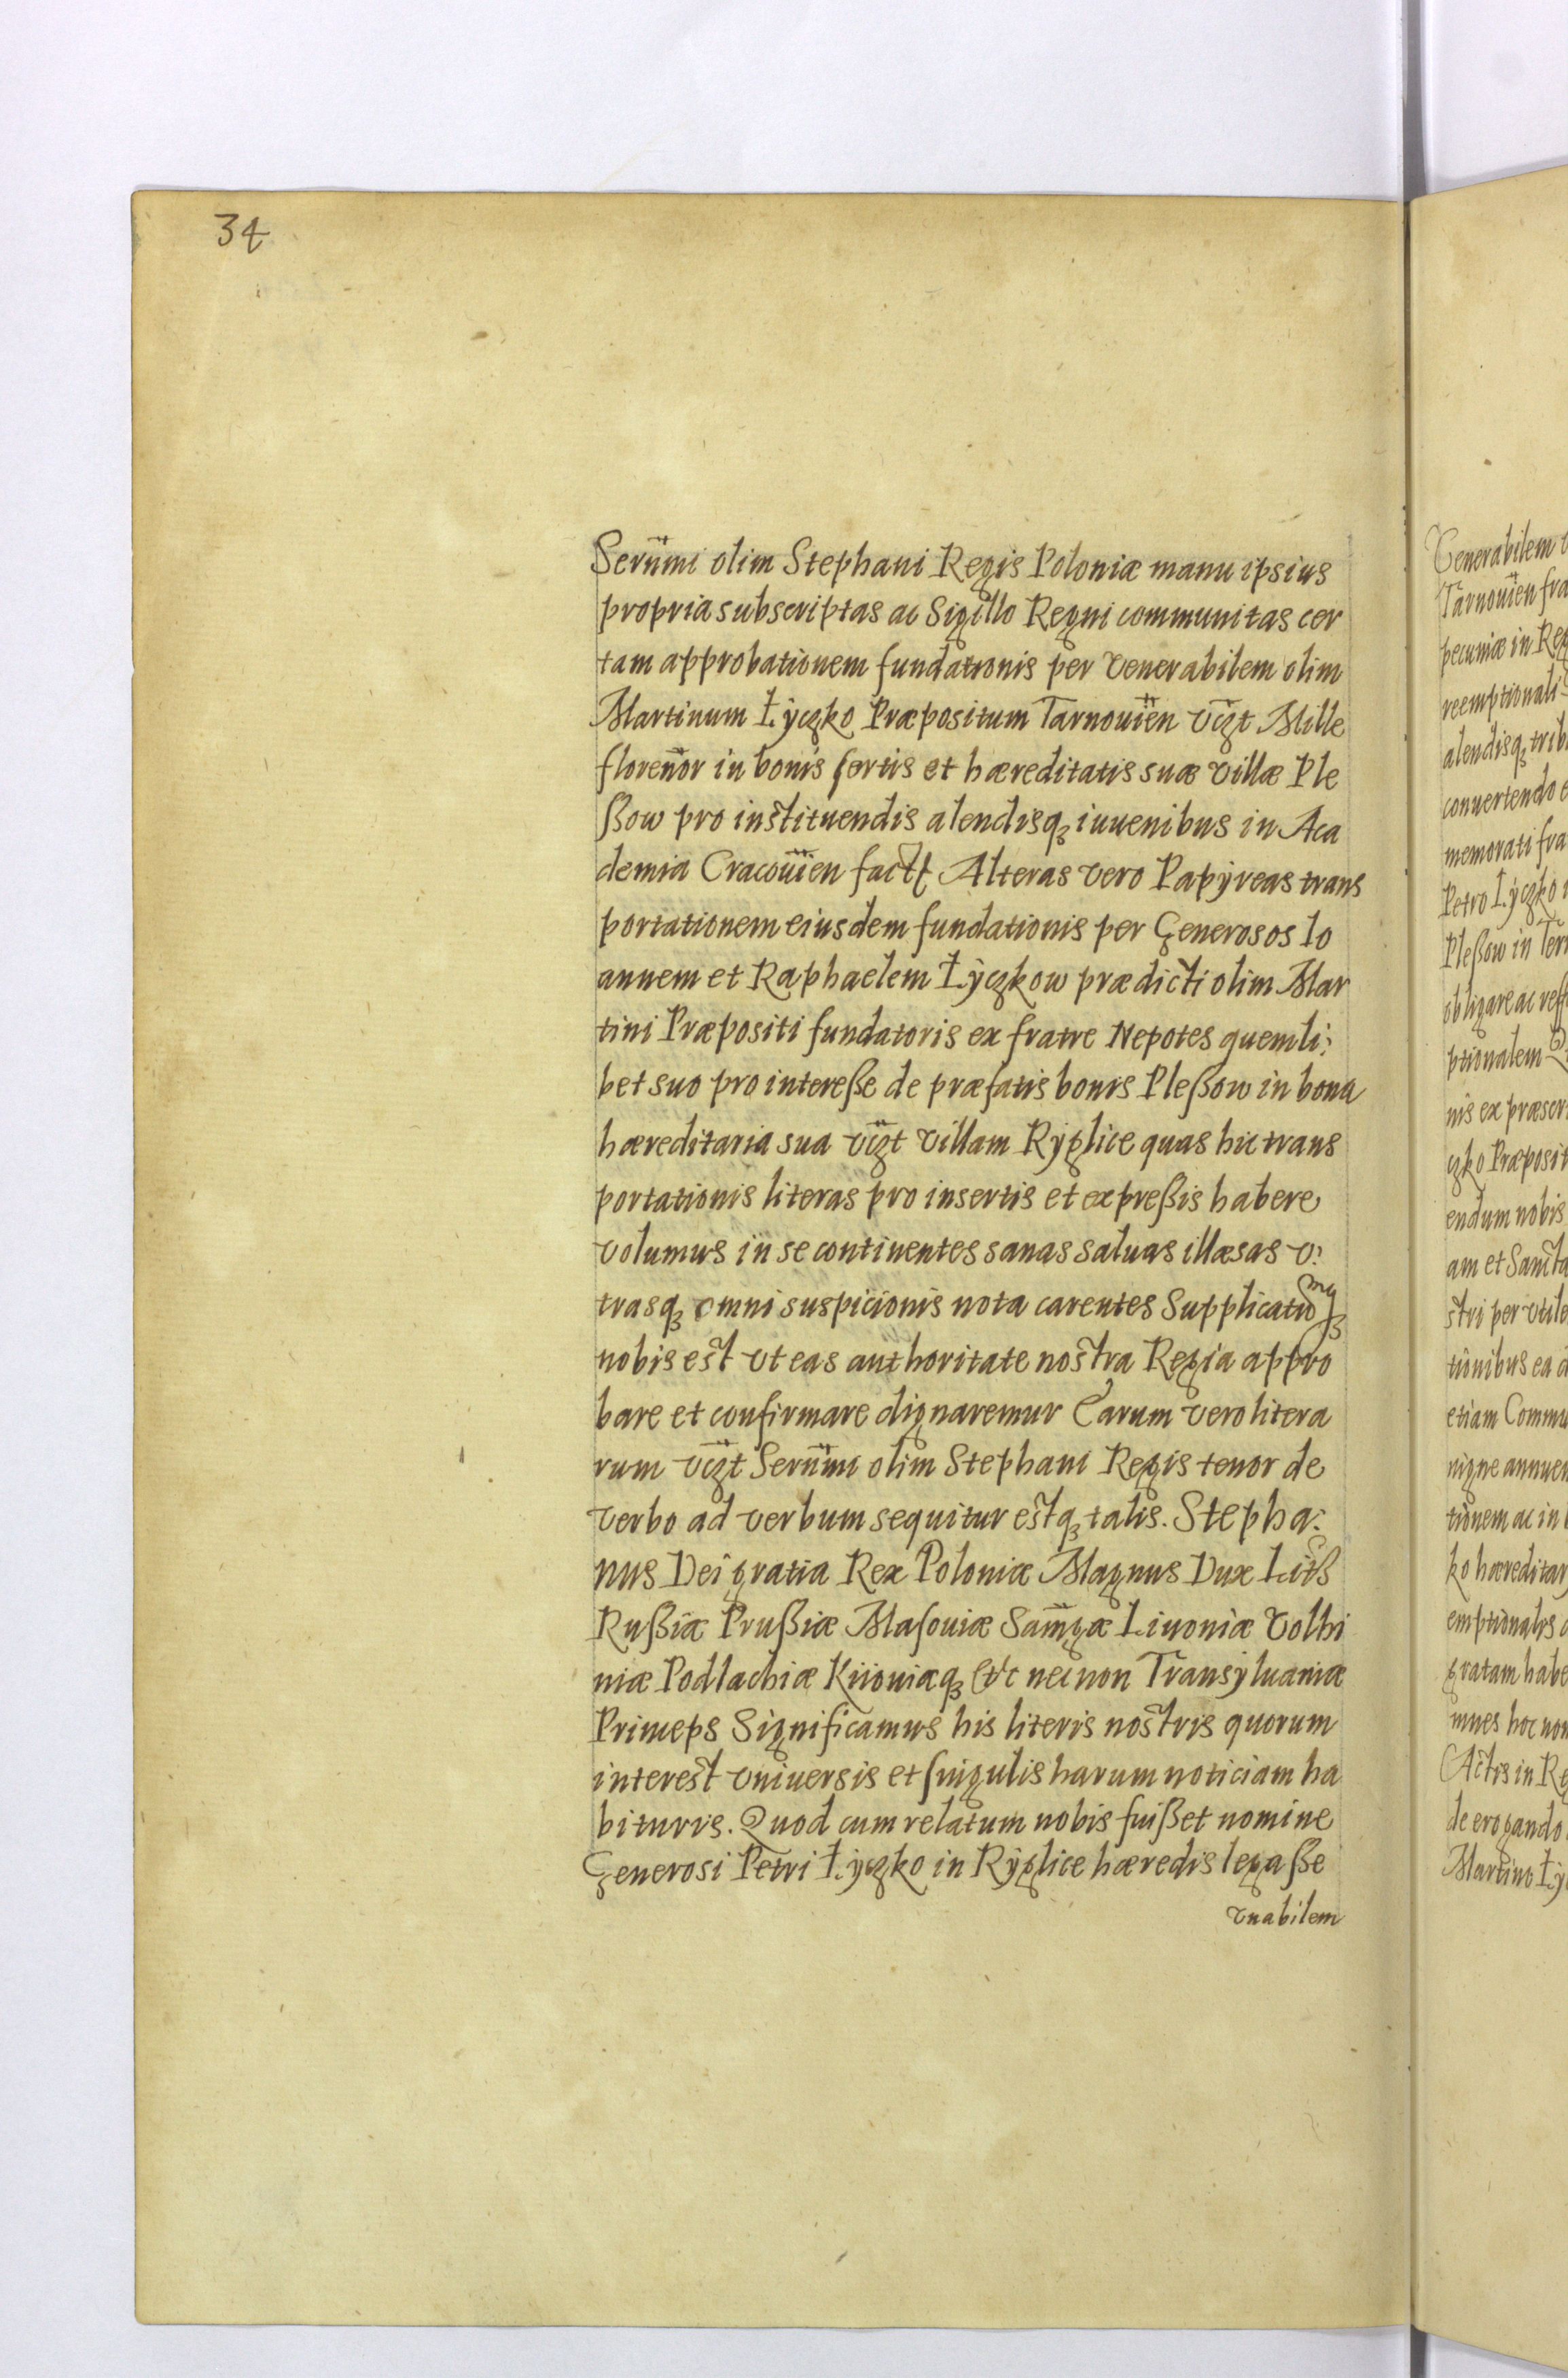 34
Serñmi olim Stephani Regis Poloniæ manu ipsius
propria subscriptas ac Sigillo Regni communitas cer
tam approbationem fundationis per Venerabilem olim
Martinum Łyczko Præpositum Tarnouien̄ vczt Mille
floren̄or in bonis sortis et hæreditatis suæ Villæ Ple
ßow pro instituendis alendisqꝫ iuuenibus in Aca
demia Cracouien̄ Alteras vero Papÿreas trans
portationem eiusdem fundationis per Generosos Io
annem et Raphaelem Łÿczkow prædicti olim Mar
tini Præpositi fundatoris ex fratre Nepotes quemli:
bet suo pro intereße de præfatis bonis Pleßow in bona
hæreditaria sua vczt Villam Rÿglice quas hic trans
portationis literas pro insertis et expreßis habere
volumus in se continentes sanas saluas illæsas v:
trasqꝫ omni suspicionis nota carentes Supplicatūmqꝫ
nobis est vt eas authoritate nostra Regia appro
bare et confirmare dignaremur Earum vero litera
rum vczt Serñmi olim Stephani Regis tenor de
verbo ad verbum sequitur estqꝫ talis. Stepha:
nus Dei gratia Rex Poloniæ Magnus Dux Lith
Rußiæ Prußiæ Masouiæ Sam̄gæ Liuoniæ Volhi
niæ Podlachiæ Kiiouiæqꝫ Etc necnon Transÿluaniæ
Princeps Significamus his literis nostris quorum
interest vniuersis et singulis harum noticiam ha
bituris. Quod cum relatum nobis fuißet nomine
Generosi Petri Łÿczko in Rÿglice hæredis legaße
vnabilem
Venerabilem
Tarnouien̄ fra
pecuniæ in Reg
reemptionali
alendisqꝫ trib
conuertendo e
memorati fra
Petro Łÿczko
Pleßow in Ter
obligare ac
ptionalem
nis ex præscri
czko Præposit
endum nobis
am et Sancta
stri per vtile
tionibus ea
etiam Commu
nigne annuen
tionem ac in
ko hæreditar
emptionalis
gratam habe
mnes hoc nom
Actis in Re
de erogando
Martino Łÿ